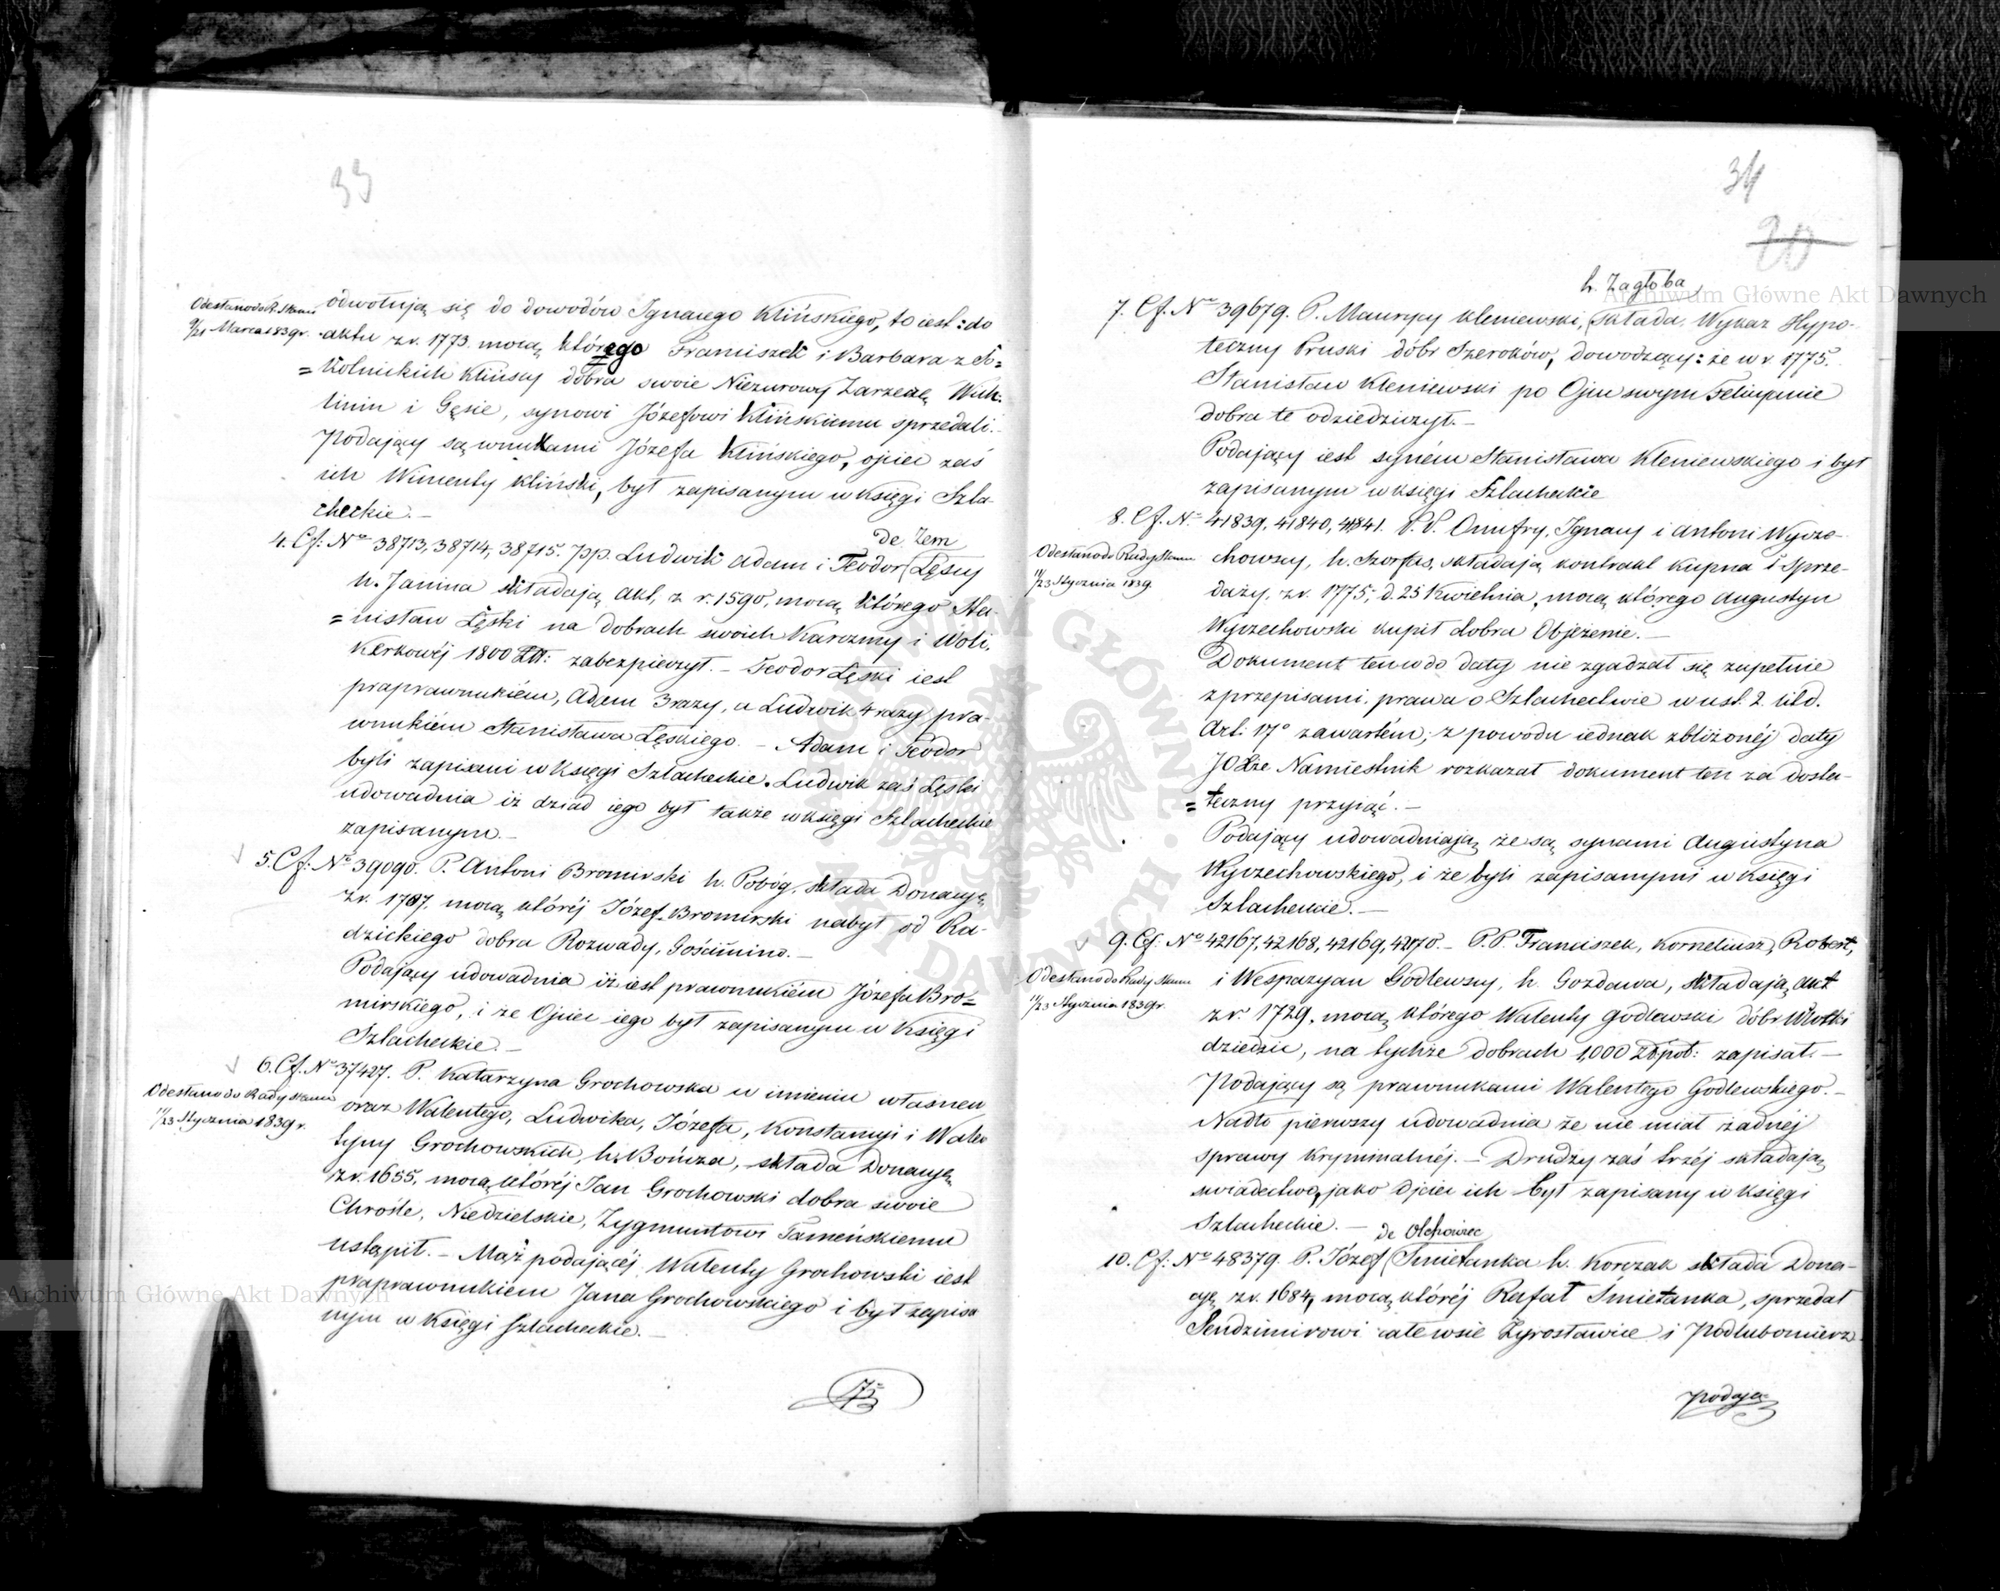 33
Odesłano do R. Stanu
9/21 Marca 1839 r.
odwołują się do dowodów Ignacego Klińskiego, to iest: do
aktu z r. 1773. mocą którego Franciszek i Barbara z So=
=kolnickich Klińscy dobra swoie Niezurowy Zarzecze Wich-
linin i Gęsie, synowi Józefowi Klińskiemu sprzedali.-
Podający są wnukami Józefa Klińskiego, ojciec zaś
ich Wincenty Kliński, był zapisanym w Księgi Szla-
checkie.-
de Zem
4. Cf: No 38713, 38714, 38715. pp. Ludwik Adam i Teodor (Łęscy
h. Janina składają akt, z r. 1590, mocą którego Sta-
=nisław Łęski na dobrach swoich Karczmy i Woli,
Kerkowéj 1800 Złł: zabezpieczył.- Teodor Łęski iest
praprawnukiém, Adam 3 razy, a Ludwik 4 razy pra-
wnukiém Stanisława Łęskiego.- Adam i Teodor
byli zapisani w Księgi Szlacheckie. Ludwik zaś Łęski
udowadnia iż dziad iego był także w księgi Szlacheckie
zapisanym.-
5. Cf: No 39090. P. Antoni Bromirski h. Pobóg, składa Donacyą
z r. 1787. mocą któréj Józef Bromirski nabył od Ra-
dzickiego dobra Rozwady, Gościmino.-
Podający udowadnia iż iest prawnukiém Józefa Bro=
mirskiego, i że Ojciec iego był zapisanym w Księgi
Szlacheckie.-
6. Cf. No 37427. P. Katarzyna Grochowska w imieniu własnem
Odesłano do Rady Stanu
11/23 Stycznia 1839 r.
oraz Walentego, Ludwika, Józefa, Konstancyi i Wale
tyny Grochowskich, h. Bończa, składa Donacyą
z r. 1655, mocą któréj Jan Grochowski dobra swoie
Chrośle, Niedzielskie, Zygmuntowi Tameńskiemu
ustąpił.- Mąż podającéj Walenty Grochowski iest
praprawnukiem Jana Grochowskiego i był zapisa
nym w Księgi Szlacheckie.-
34
20
h. Zagłoba
7. Cf. No 39679. P. Maurycy Kleniewski, (składa, Wykaz Hypo-
teczny Pruski dóbr Szeroków, dowodzący: że w r. 1775.
Stanisław Kleniewski po Ojcu swym Felicyanie
dobra te odziedziczył.-
Podający iest syném Stanisława Kleniewskiego i był
zapisanym w księgi Szlacheckie
8. Cf. No 41839, 41840, 41841. P. P. Onufry, Ignacy i Antoni Wyrze-
Odesłano do Rady Stanu
11/23 Stycznia 1839.
chowscy, h. Szorfas, składają kontrakt kupna i Sprze-
daży, z r. 1775; d. 25 Kwietnia, mocą którego Augustyn
Wyrzechowski kupił dobra Objeżenie.-
Dokument ten co do daty nie zgadzał się zupełnie
z przepisami prawa o Szlachectwie w ust. 2. lit d.
Art: 17° zawartém; z powodu iednak zbliżonéj daty
JO Xże Namiestnik rozkazał dokument ten za dosta-
=teczny przyiąć.-
Podający udowadniają że są synami Augustyna
Wyrzechowskiego, i że byli zapisanymi w Księgi
Szlacheckie.-
9. Cf: No 42167, 42168, 42169, 42170.- P.P. Franciszek, Korneliusz, Robert,
Odesłano do Rady Stanu
11/23 Stycznia 1839 r.
i Wespazyan Godlewscy, h. Gozdawa, składają akt
z r. 1729. mocą którego Walenty Godlewski dóbr Włotki
dziedzic, na tychże dobrach 1,000 Złpol: zapisał.-
Podający są prawnukami Walentego Godlewskiego.-
Nadto pierwszy udowadnia że nie miał żadnéj
sprawy kryminalnéj.- Drudzy zaś trzéj składają
świadectwo, jako Ojciec ich był zapisany w księgi
Szlacheckie.-
de Olchowiec
10. Cf: No 48379. P. Józef (Śmietanka h. Korczak składa Dona-
cyą z r. 1684, mocą któréj Rafał Śmietanka, sprzedał
Sendzimirowi całe wsie Żyrosławice i Podlubomierz
podaja
Archiwum Główne Akt Dawnych
Archiwum Główne Akt Dawnych
ARCHIWUM GŁÓWNE AKT DAWNYCH